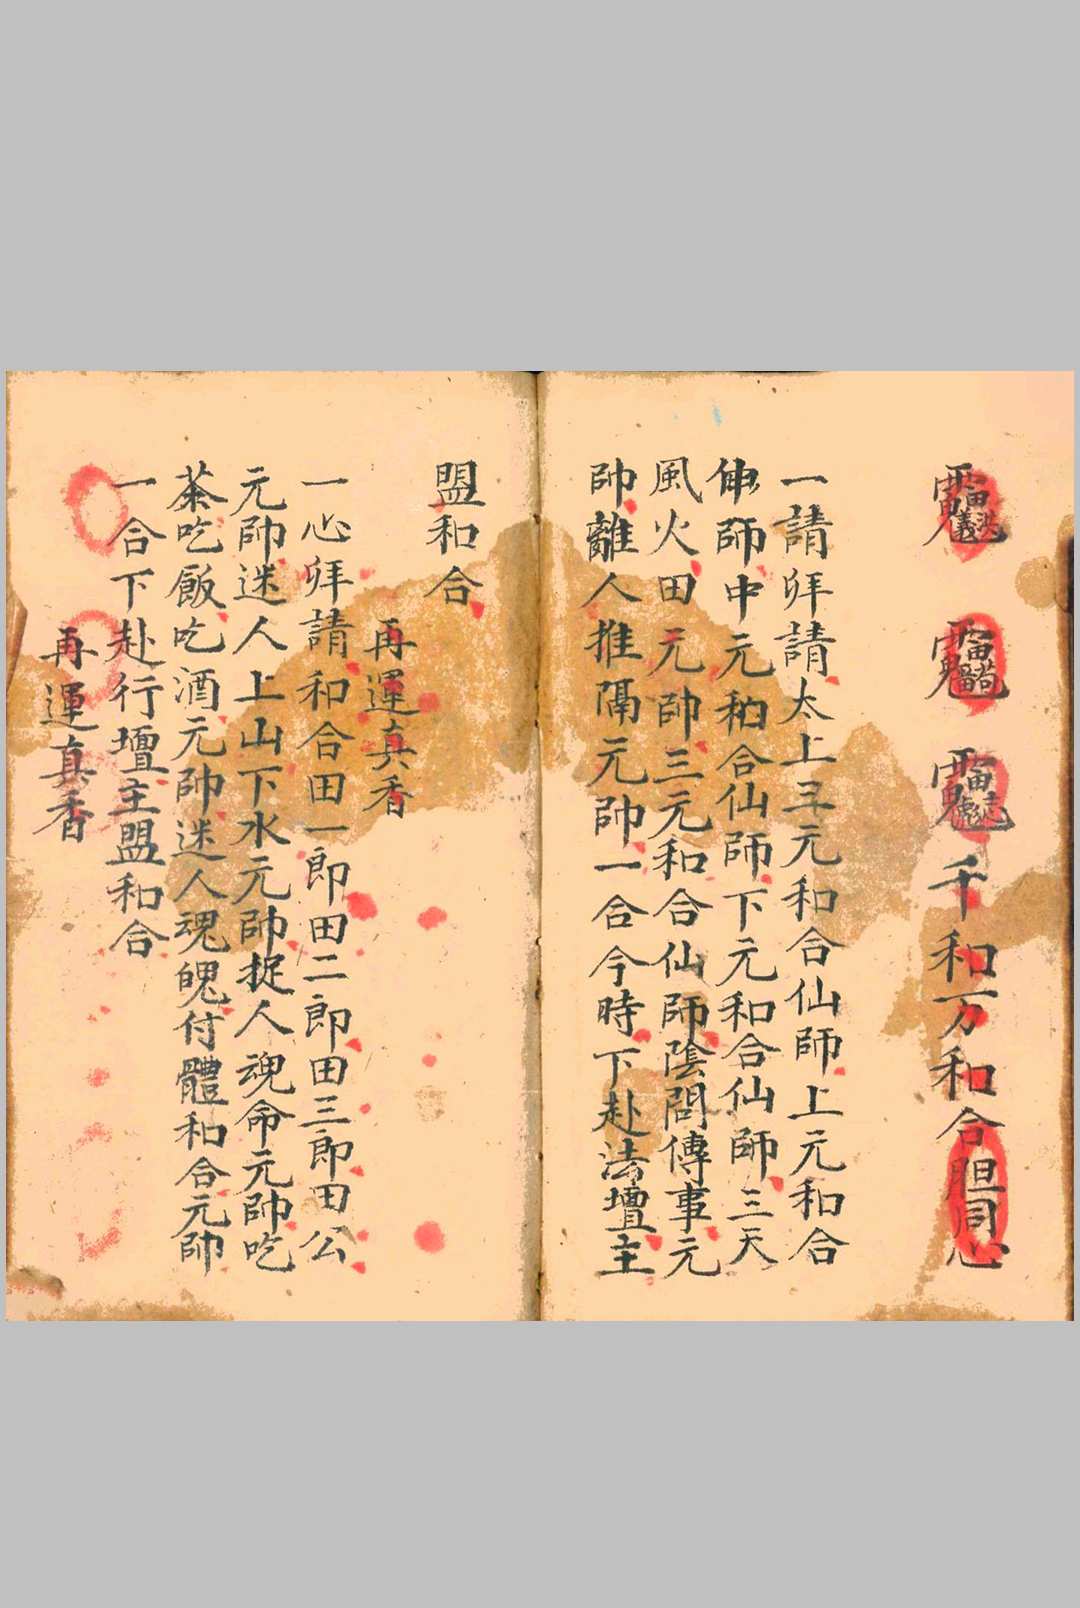 千和万和合胆同心
一請拜請太上三元和合仙師上元和合
仙師中元和合仙師下元和合仙師三天
風火田元帥三元和合仙師陰間傳事元
帥離人推隔元帥一合今時下赴法壇主
盟和合
再運真香
一心拜請和合田一郎田二郎田三郎田公
元帥迷人上山下水元帥捉人魂命元帥吃
茶吃飯吃酒元帥迷人魂魄付體和合元帥
一合下赴行壇主盟和合
再運真香